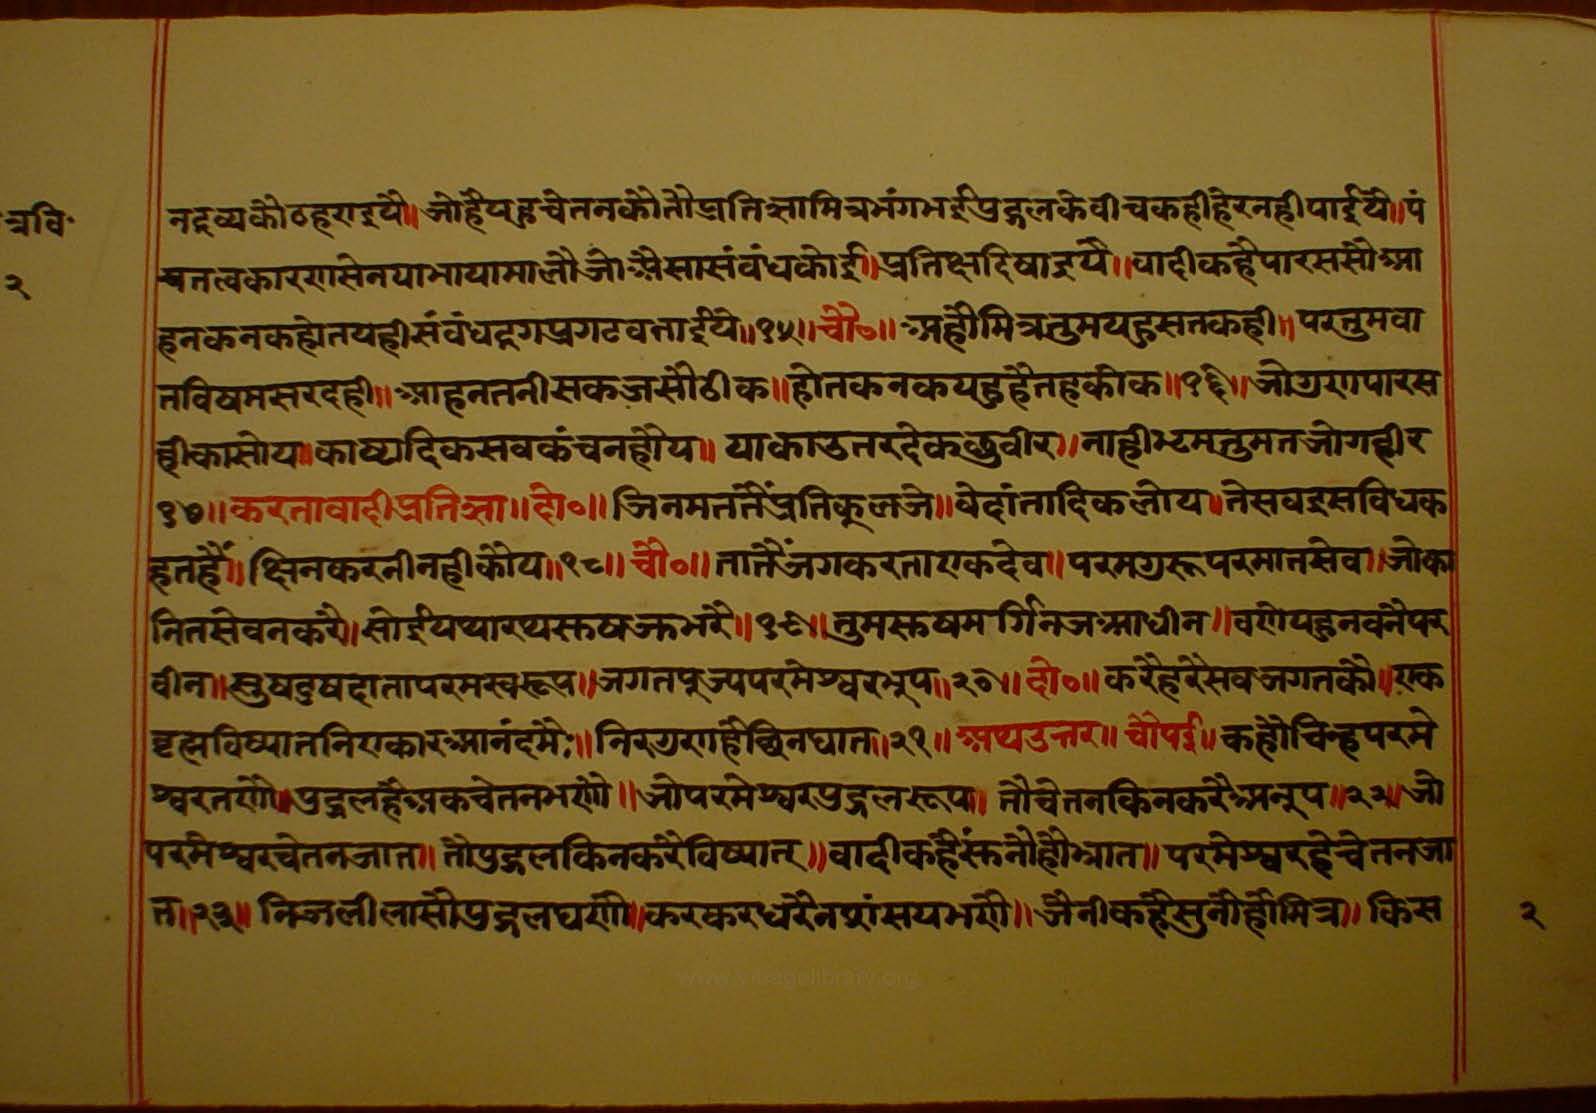 त्रवि॰
२
नद्रव्यकौठहराइयै॥ जोहैयहुचेतनकौतौप्रतिज्ञामित्रभंगभईपुद्गलकेवीचकहीहेरनहीपाईयै॥ पं
चतत्वकारणसेनयाभायामालौजोऐसासंवंधकोई॥ प्रतिक्षदिषाइयै॥ वादीकहैपारससौंआ
हनकनकहोतयहीसंवंधदृगप्रगटवताईयै॥१५॥ चौ०॥ अहौमित्रतुमयहुसतकही॥ परतुमवा
तविषमसरदही॥ आहनतनीसकजसौठीक॥ होतकनकयहुहैतहकीक॥१६॥ जोगुणपारस
हीकासोय॥ काष्टादिकसवकंचनहौय॥ याकाउतरदेकछुवीर॥ नाहीभ्रमतुमतजोगहीर
१७॥ करतावादीप्रतिज्ञा॥ दो०॥ जिनमततैंप्रतिकूलजे॥ वेदांतादिकलोय॥ तेसवइसविधक
हतहैं॥ छिनकरनीनहीकोय॥१८॥ चौ०॥ तातैंजगकरताएकदेव॥ परमगुरूपरमातसेव॥ जोका
नितसेवनकरै॥ सोईयथारथसतषक्तभरै॥१९॥ तुमसतषमर्गिनजआधीन॥ वणेयहुनवनैपर
वीन॥ सुषदुषदातापरमस्वरूप॥ जगतपूज्यपरमेश्वरभूप॥२०॥ दो०॥ करैहरैसवजगतकौ॥ एक
वृह्मविष्यातनिराकारआनंदमै॥ निरगुणहैछिनघात॥२१॥ अथउत्तर॥ चौपई॥ कहौचिन्हपरमे
श्वरतणौ॥ पुद्गलहैअकचेतनभणौ॥ जोपरमेश्वरपुद्गलरूप॥ तौचेतनकिनकरैअनूप॥२२॥ जो
परमेश्वरचेतनजात॥ तौपुद्गलकिनकरैविष्यात॥ वादीकहैसुनौहौभ्रात॥ परमेश्वरहैचेतनजा
त॥२३॥ निजलीलासौपुद्गलघणौ॥ करकरधरैनसांसयभणौ॥ जैनीकहैसुनौहौमित्र॥ किस
२